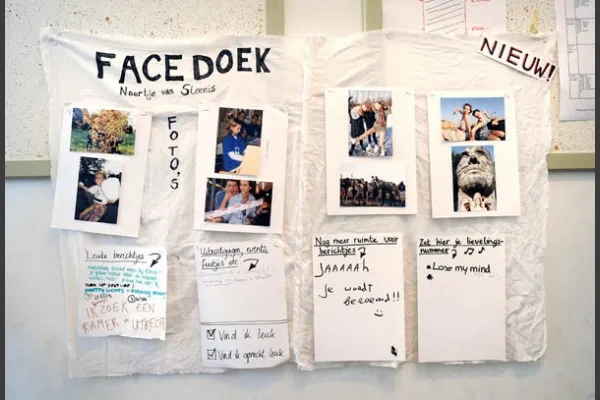 FACE DOEK
Noortje van Sleenis
NIEUW!
FOTO'S
Leuke berichtjes
IK ZOEK EEN
KAMER in UTRECHT
Uitnodigingen, events
feestjes etc
Vind ik leuk
Vind ik oprecht leuk
Nog meer ruimte voor
berichtjes
JAAAAAh
Je wordt
beroemd!!
Zet hier je lievelings-
nummer
Lose my mind